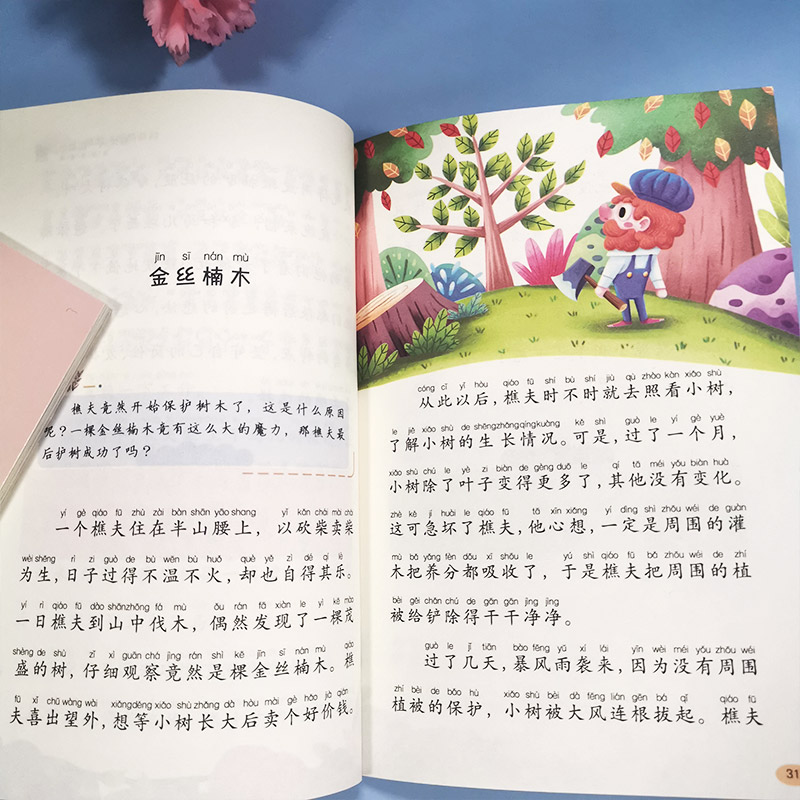 jīn sī nán mù
金丝楠木
樵夫竟然开始保护树木了，这是什么原因
呢？一棵金丝楠木竟有这么大的魔力，那樵夫最
后护树成功了吗？
yí gè qiáo fū zhù zài bàn shān yāo shang yǐ kǎn chái mài chái
一个樵夫住在半山腰上，以砍柴卖柴
wéi shēng rì zi guò de bù wēn bù huǒ què yě zì dé qí lè
为生，日子过得不温不火，却也自得其乐。
yí rì qiáo fū dào shānzhōng fá mù ǒu rán fā xiàn le yì kē mào
一日樵夫到山中伐木，偶然发现了一棵茂
shèng de shù zǐ xì guān chá jìng rán shì kē jīn sī nán mù qiáo
盛的树，仔细观察竟然是棵金丝楠木。樵
fū xǐ chū wàng wài xiǎngděng xiǎo shù zhǎng dà hòu mài gè hǎo jià qián
夫喜出望外，想等小树长大后卖个好价钱。
cóng cǐ yǐ hòu qiáo fū shí bù shí jiù qù zhào kàn xiǎo shù
从此以后，樵夫时不时就去照看小树，
le jiě xiǎo shù de shēngzhǎngqíngkuàng kě shì guò le yí gè yuè
了解小树的生长情况。可是，过了一个月，
xiǎo shù chú le yè zi biàn de gèng duō le qí tā méi yǒu biàn huà
小树除了叶子变得更多了，其他没有变化。
zhè kě jí huài le qiáo fū tā xīn xiǎng yí dìng shì zhōu wéi de guàn
这可急坏了樵夫，他心想，一定是周围的灌
mù bǎ yǎng fèn dōu xī shōu le yú shì qiáo fū bǎ zhōu wéi de zhí
木把养分都吸收了，于是樵夫把周围的植
bèi gěi chǎn chú de gān gān jìng jìng
被给铲除得干干净净。
guò le jǐ tiān bào fēng yǔ xí lái yīn wèi méi yǒu zhōu wéi
过了几天，暴风雨袭来，因为没有周围
zhí bèi de bǎo hù xiǎo shù bèi dà fēng lián gēn bá qǐ qiáo fū
植被的保护，小树被大风连根拔起。樵夫
31